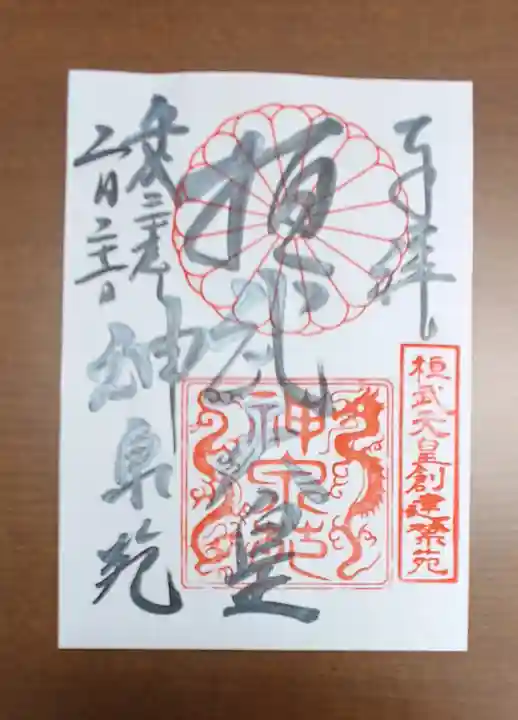 奉拝
桓武天皇創建禁苑
桓武天皇
神泉苑
神泉苑
平成三十年
二月二十一日